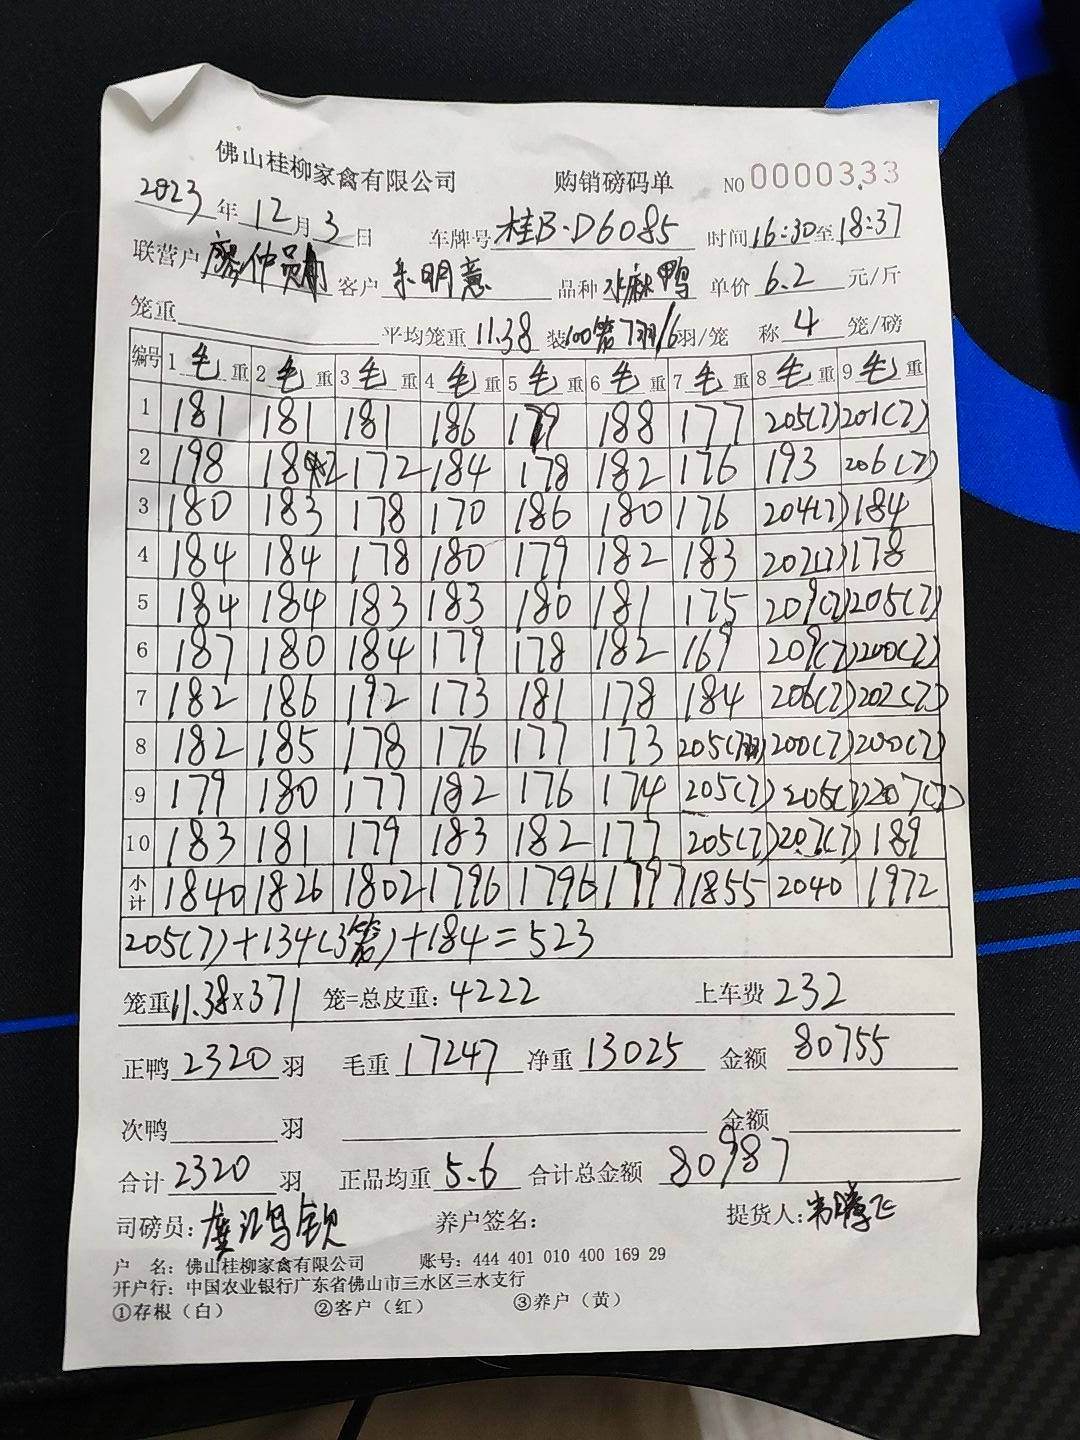 佛山桂柳家禽有限公司 购销磅码单 NO 0000333
2023年12月3日 车牌号桂B·D6085 时间16:30至18:37
联营户廖仲 客户朱明意 品种水麻鸭 单价6.2元/斤
笼重 平均笼重11.38 装100笼7羽/6羽/笼 称4笼/磅
编号 1毛重 2毛重 3毛重 4毛重 5毛重 6毛重 7毛重 8毛重 9毛重
1 181 181 181 186 179 188 177 205(7) 201(7)
2 198 182 172 184 178 182 176 193 206(7)
3 180 183 178 170 186 180 176 204(7) 184
4 184 184 178 180 179 182 183 202(7) 178
5 184 184 183 183 180 181 175 209(7) 205(7)
6 187 180 184 179 178 182 169 209(7) 200(7)
7 182 186 192 173 181 178 184 206(7) 202(7)
8 182 185 178 176 177 173 205(7羽) 200(7) 200(7)
9 179 180 177 182 176 174 205(7) 205(7) 207(7)
10 183 181 179 183 182 177 205(7) 207(7) 189
小计 1840 1826 1802 1796 1796 1797 1855 2040 1972
205(7)+134(3笼)+184=523
笼重11.38x371 笼=总皮重:4222 上车费232
正鸭2320羽 毛重17247 净重13025 金额80755
次鸭 羽 金额
合计2320羽 正品均重5.6 合计总金额80987
司磅员: 养户签名: 提货人:韦腾飞
户 名:佛山桂柳家禽有限公司 账号:444 401 010 400 169 29
开户行:中国农业银行广东省佛山市三水区三水支行
①存根(白) ②客户(红) ③养户(黄)